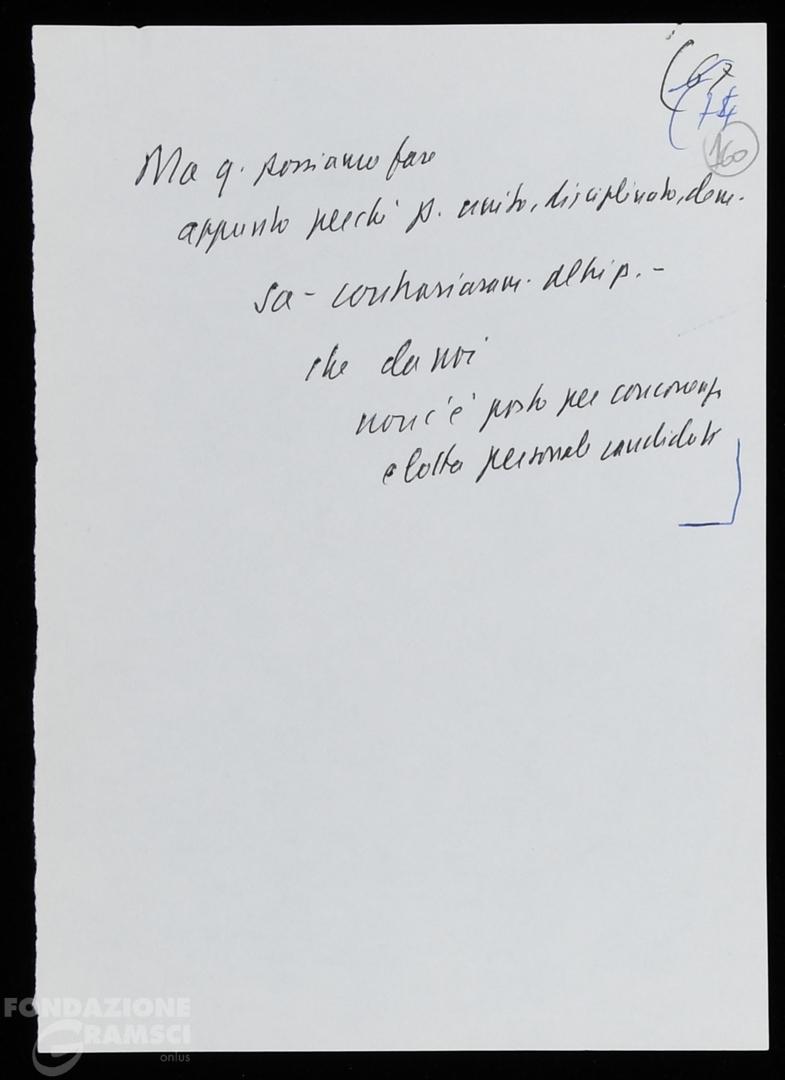 160
Ma q. possiamo fare
appunto perché p. unito, disciplinato, dem.
sa - contrariam. altri p. -
che da noi
non c'è posto per concorrenza
e lotta personale candidati
FONDAZIONE
GRAMSCI
onlus